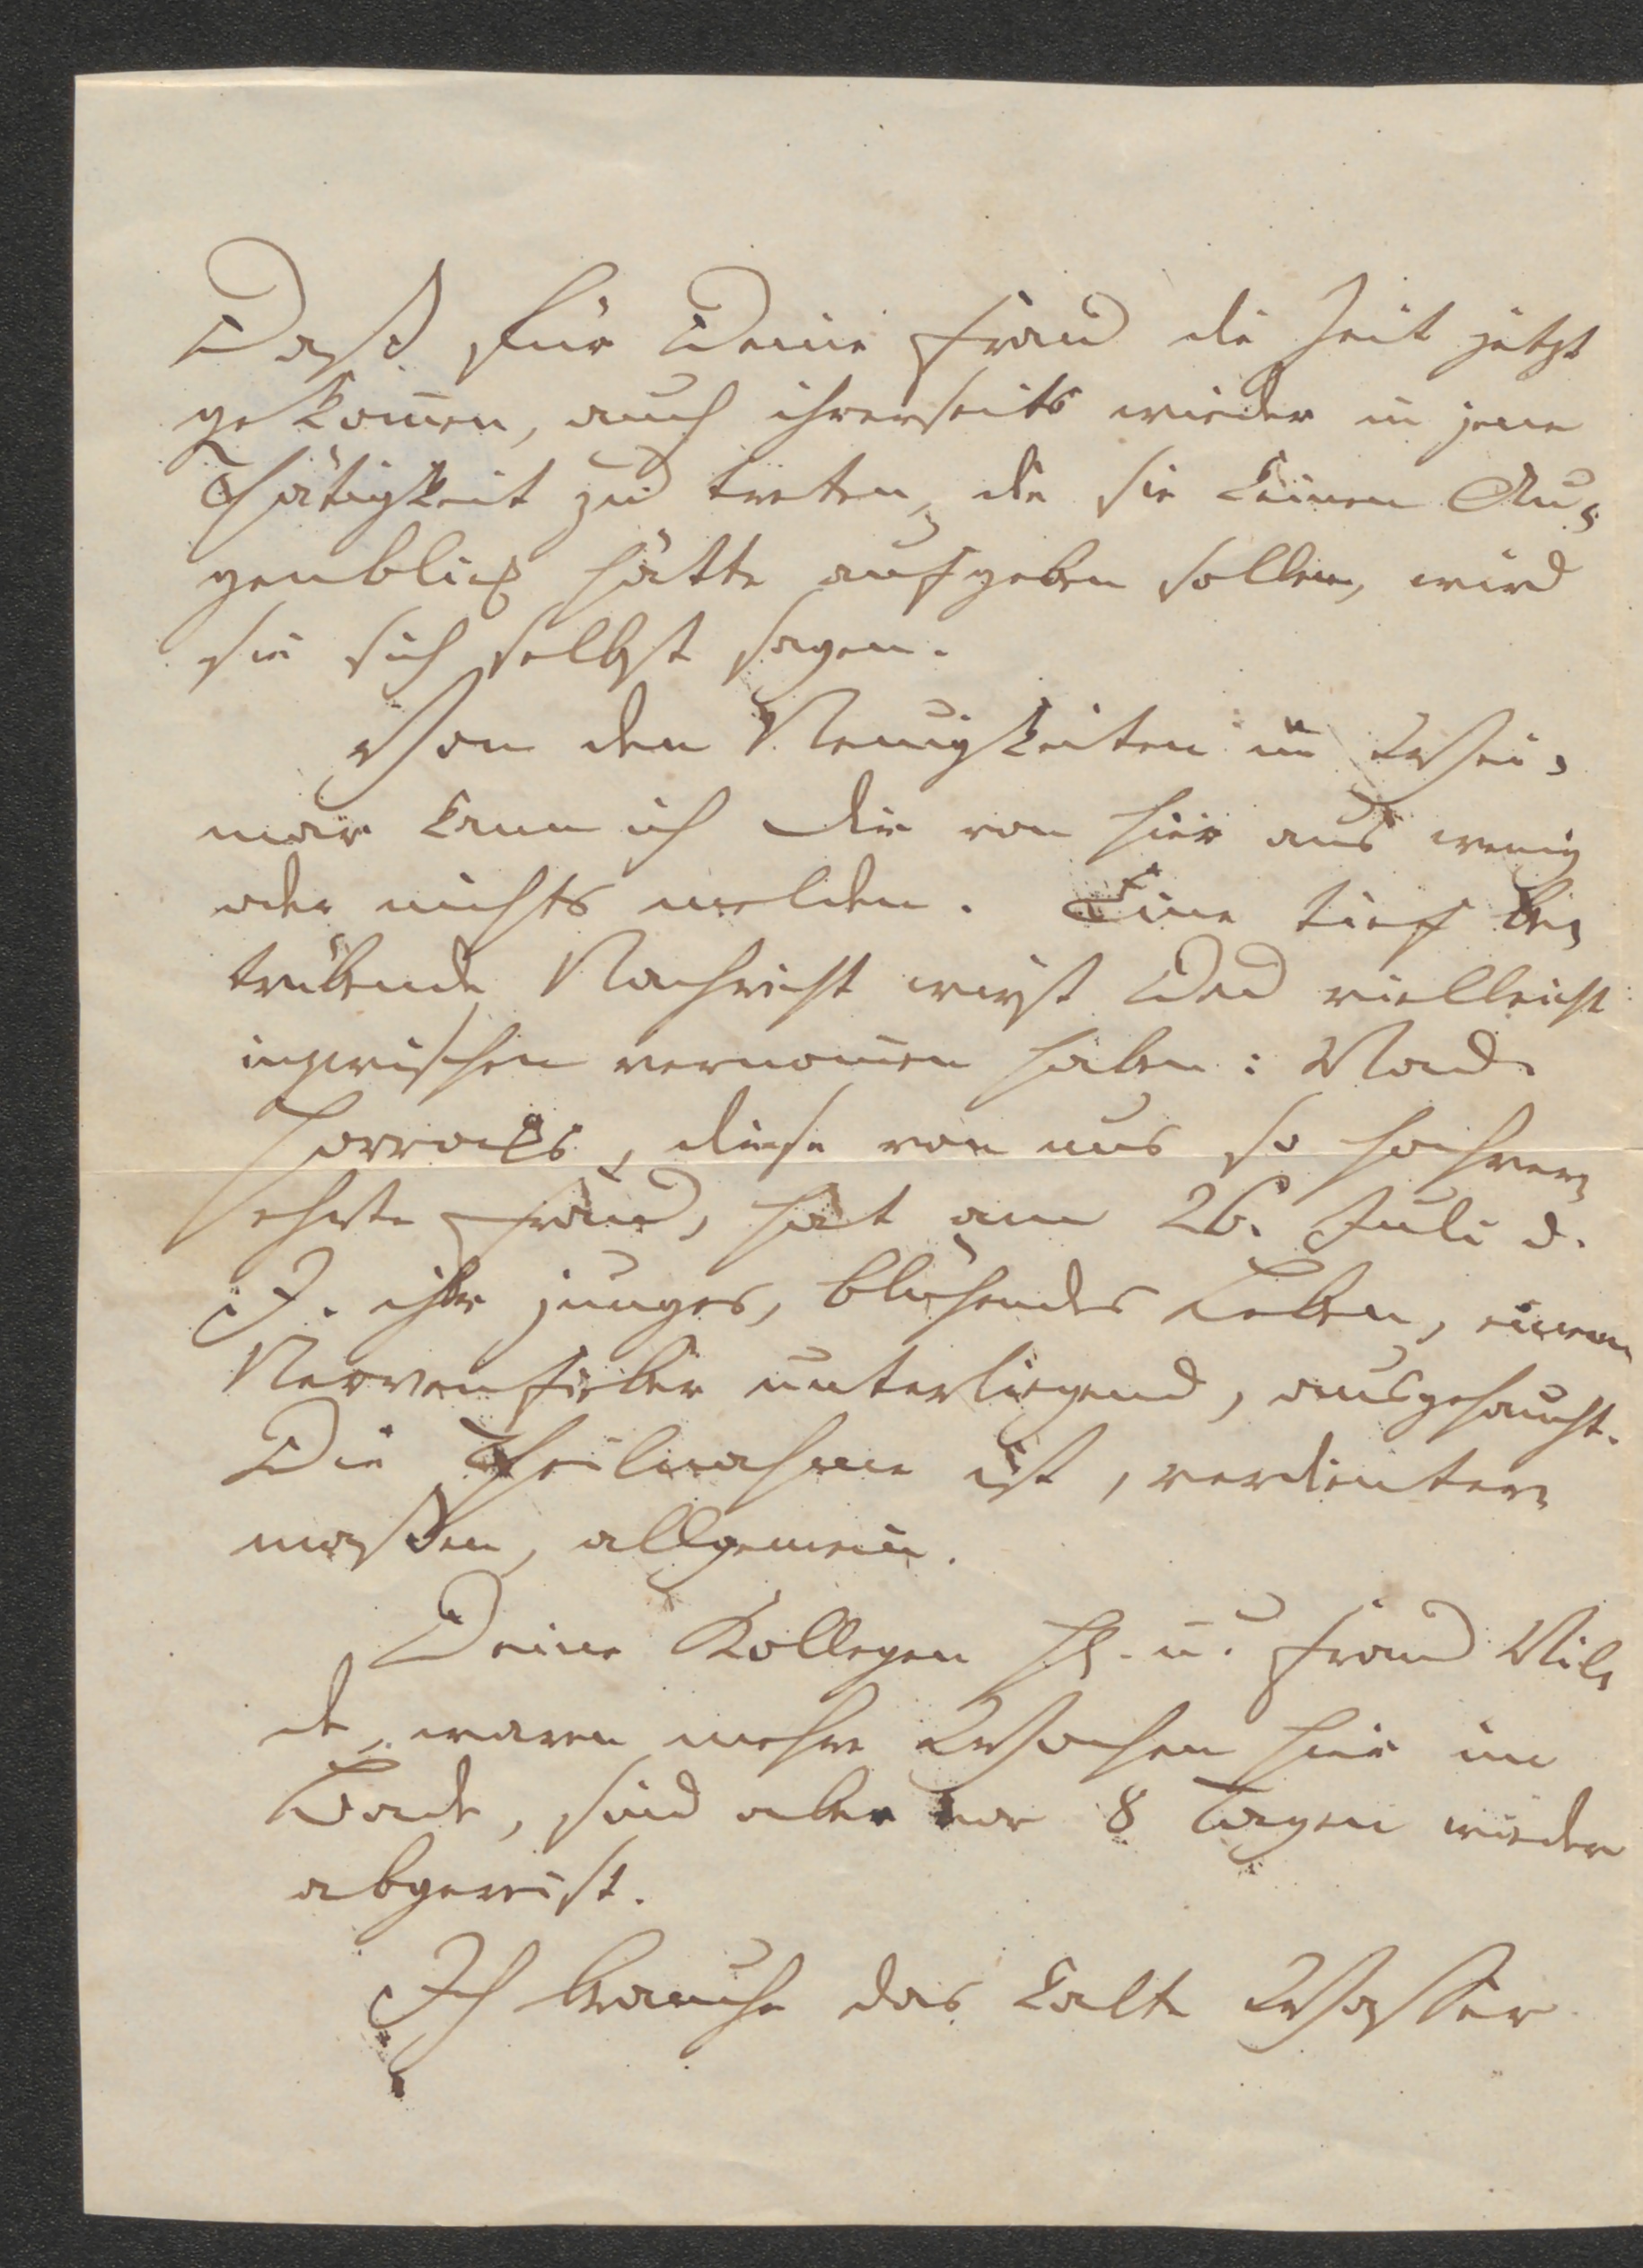 Daß für Deine Frau die Zeit jetzt
gekom̅en, auch ihrerseits wieder in jene
Thätigkeit zu treten, die sie keinen Au-
genblick hätte aufgeben sollen, wird
sie sich selbst sagen.
Von den Neuigkeiten in Wei-
mar kann ich Dir von hier aus wenig
oder nichts melden. Eine tief be-
trübende Nachricht wirst Du vielleicht
inzwischen vernom̅en haben: Mad.
Horrocks, diese von uns so hochver-
ehrte Frau, hat am 26. Juli d.
J. ihr junges, blühendes Leben, einem
Nervenfieber unterliegend, ausgehaucht.
Die Theilnahme ist, verdienter-
maßen, allgemein.
Deine Kollegen H. u. Frau
de, waren mehre Wochen hier im
Bade, sind aber vor 8 Tagen wieder
abgereist.
Ich brauche das kalte Wasser